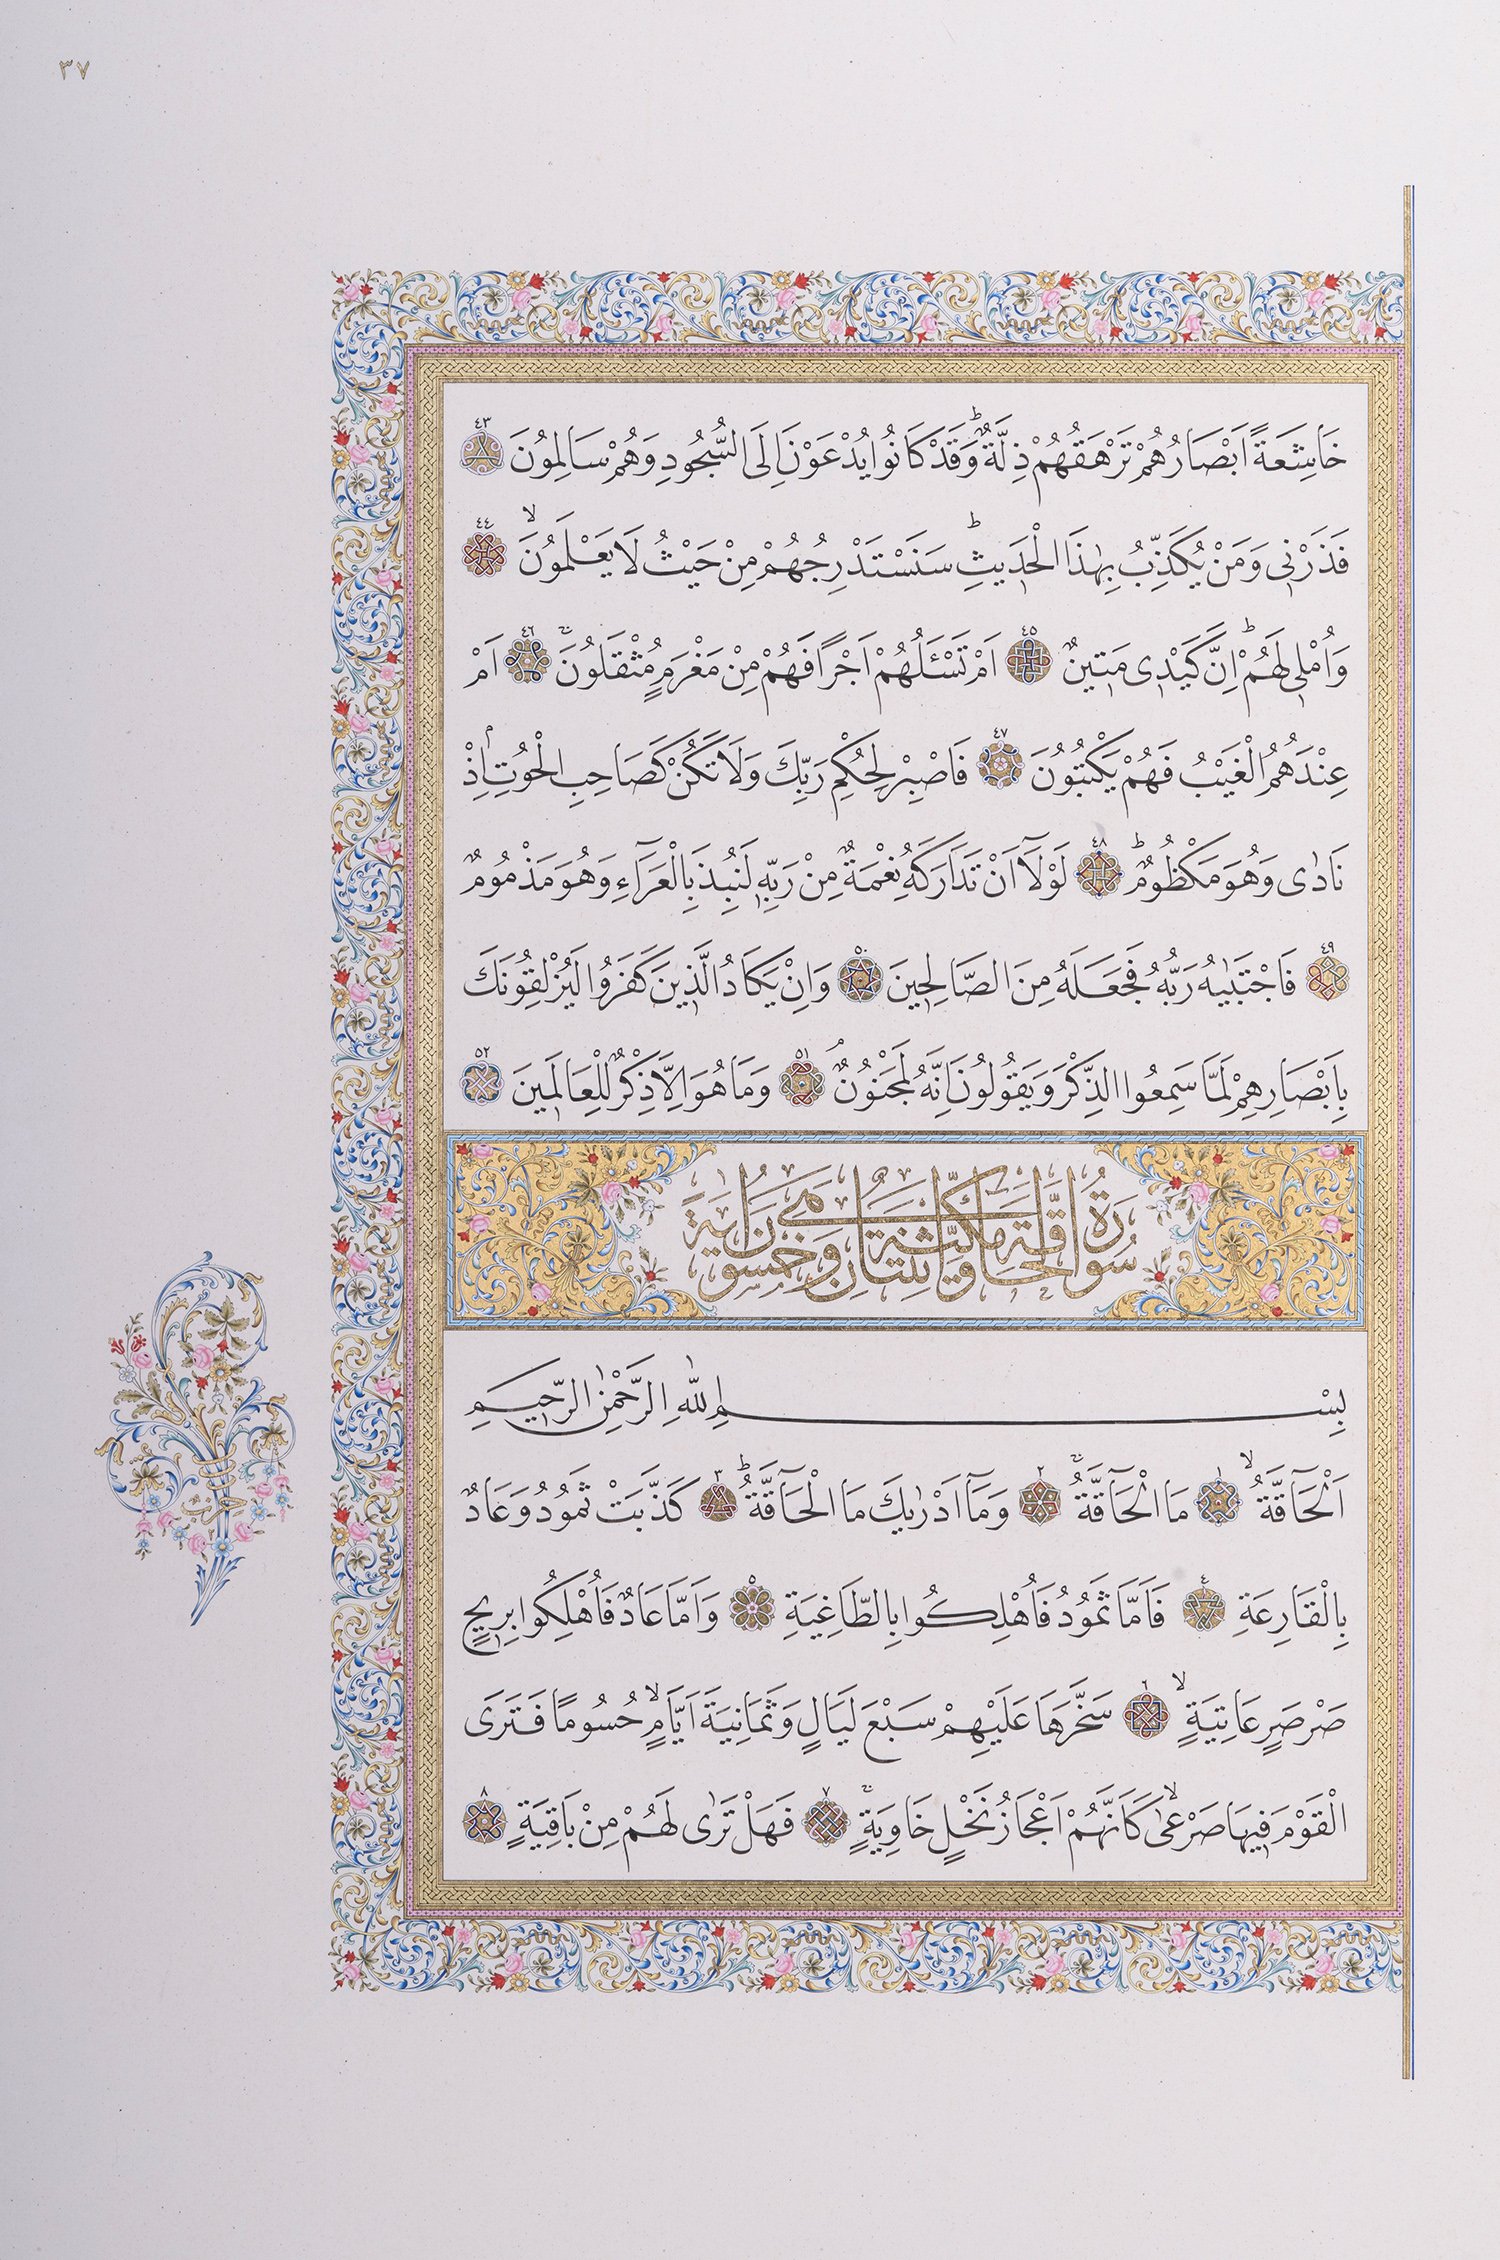 ٣٧
خَاشِعَةً اَبْصَارُهُمْ تَرْهَقُهُمْ ذِلَّةٌ ؕ وَقَدْ كَانُوا يُدْعَوْنَ اِلَى السُّجُودِ وَهُمْ سَالِمُونَ ٤٣
فَذَرْنٖى وَمَنْ يُكَذِّبُ بِهٰذَا الْحَدٖيثِ ؕ سَنَسْتَدْرِجُهُمْ مِنْ حَيْثُ لَا يَعْلَمُونَ ۙ ٤٤
وَاُمْلٖى لَهُمْ ؕ اِنَّ كَيْدٖى مَتٖينٌ ٤٥ اَمْ تَسْـَٔلُهُمْ اَجْرًا فَهُمْ مِنْ مَغْرَمٍ مُثْقَلُونَ ۚ ٤٦ اَمْ
عِنْدَهُمُ الْغَيْبُ فَهُمْ يَكْتُبُونَ ٤٧ فَاصْبِرْ لِحُكْمِ رَبِّكَ وَلَا تَكُنْ كَصَاحِبِ الْحُوتِ ۢ اِذْ
نَادٰى وَهُوَ مَكْظُومٌ ؕ ٤٨ لَوْلَٓا اَنْ تَدَارَكَهُ نِعْمَةٌ مِنْ رَبِّهٖ لَنُبِذَ بِالْعَرَٓاءِ وَهُوَ مَذْمُومٌ
٤٩ فَاجْتَبٰيهُ رَبُّهُ فَجَعَلَهُ مِنَ الصَّالِحٖينَ ٥٠ وَاِنْ يَكَادُ الَّذٖينَ كَفَرُوا لَيُزْلِقُونَكَ
بِاَبْصَارِهِمْ لَمَّا سَمِعُوا الذِّكْرَ وَيَقُولُونَ اِنَّهُ لَمَجْنُونٌ ۢ ٥١ وَمَا هُوَ اِلَّا ذِكْرٌ لِلْعَالَمٖينَ ٥٢
سُورَةُ الْحَاقَّةِ مَكِّيَّةٌ وَهِيَ اثْنَتَانِ وَخَمْسُونَ اٰيَةً
بِسْمِ اللّٰهِ الرَّحْمٰنِ الرَّحٖيمِ
اَلْحَٓاقَّةُ ۙ ١ مَا الْحَٓاقَّةُ ۚ ٢ وَمَٓا اَدْرٰيكَ مَا الْحَٓاقَّةُ ؕ ٣ كَذَّبَتْ ثَمُودُ وَعَادٌ
بِالْقَارِعَةِ ٤ فَاَمَّا ثَمُودُ فَاُهْلِكُوا بِالطَّاغِيَةِ ٥ وَاَمَّا عَادٌ فَاُهْلِكُوا بِرٖيحٍ
صَرْصَرٍ عَاتِيَةٍ ۙ ٦ سَخَّرَهَا عَلَيْهِمْ سَبْعَ لَيَالٍ وَثَمَانِيَةَ اَيَّامٍ ۙ حُسُومًا فَتَرَى
الْقَوْمَ فٖيهَا صَرْعٰى ۙ كَاَنَّهُمْ اَعْجَازُ نَخْلٍ خَاوِيَةٍ ۚ ٧ فَهَلْ تَرٰى لَهُمْ مِنْ بَاقِيَةٍ ٨